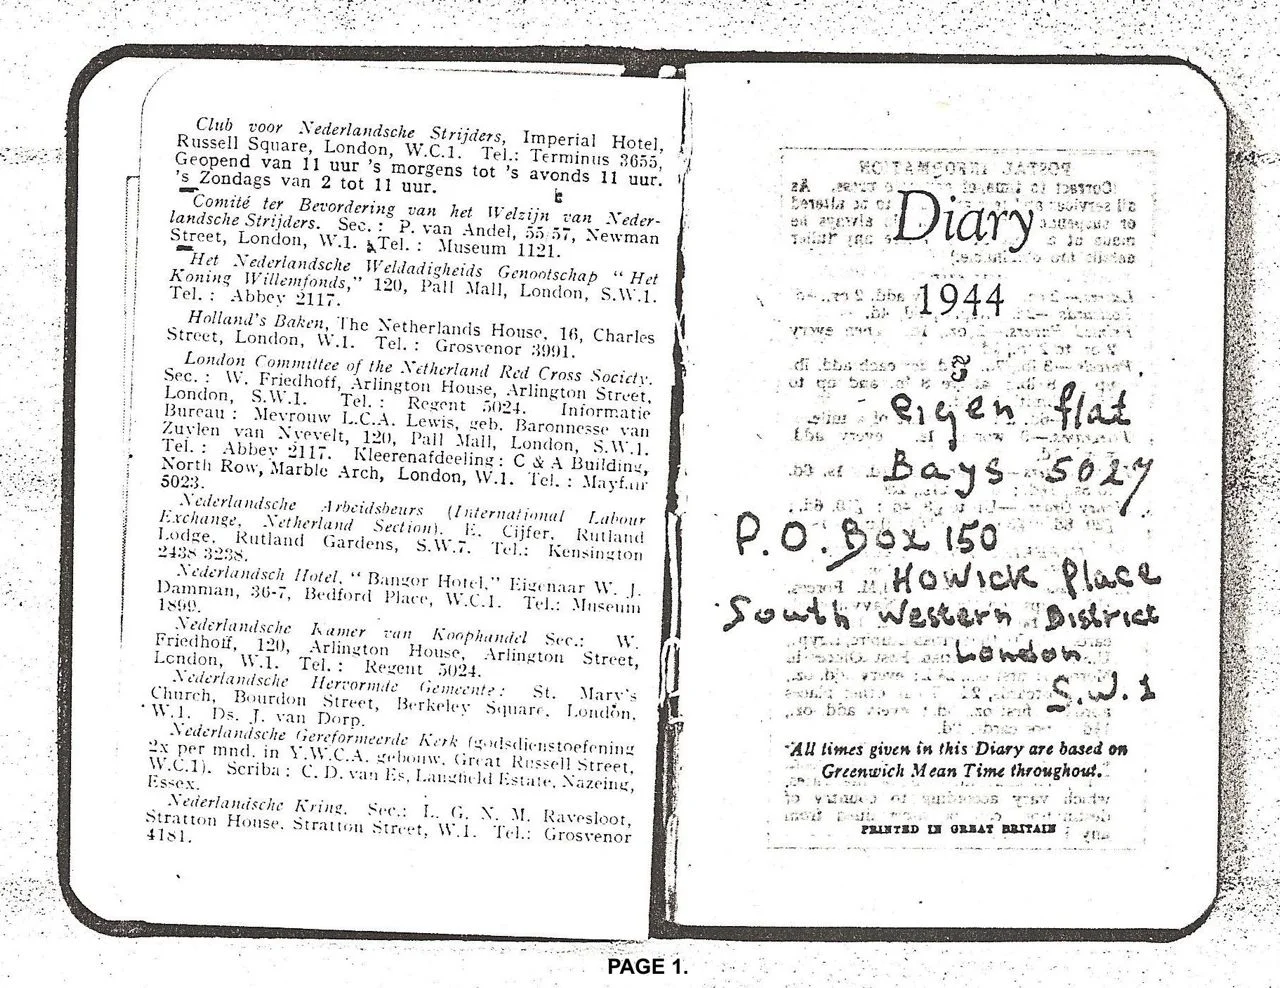 Club voor Nederlandsche Strijders, Imperial Hotel,
Russell Square, London, W.C.1. Tel.: Terminus 3655,
Geopend van 11 uur 's morgens tot 's avonds 11 uur.
's Zondags van 2 tot 11 uur.
Comité ter Bevordering van het Welzijn van Neder-
landsche Strijders. Sec.: P. van Andel, 55/57, Newman
Street, London, W.1. Tel.: Museum 1121.
Het Nederlandsche Weldadigheids Genootschap "Het
Koning Willemfonds," 120, Pall Mall, London, S.W.1.
Tel.: Abbey 2117.
Holland's Baken, The Netherlands House, 16, Charles
Street, London, W.1. Tel.: Grosvenor 3991.
London Committee of the Netherland Red Cross Society.
Sec.: W. Friedhoff, Arlington House, Arlington Street,
London, S.W.1. Tel.: Regent 5024. Informatie
Bureau: Mevrouw L.C.A. Lewis, geb. Baronnesse van
Zuylen van Nyevelt, 120, Pall Mall, London, S.W.1.
Tel.: Abbey 2117. Kleerenafdeeling: C & A Building,
North Row, Marble Arch, London, W.1. Tel.: Mayfair
5023.
Nederlandsche Arbeidsbeurs (International Labour
Exchange, Netherland Section), E. Cijfer, Rutland
Lodge, Rutland Gardens, S.W.7. Tel.: Kensington
2438/3238.
Nederlandsch Hotel, "Bangor Hotel," Eigenaar W. J.
Damman, 36-7, Bedford Place, W.C.1. Tel.: Museum
1899.
Nederlandsche Kamer van Koophandel Sec.: W.
Friedhoff, 120, Arlington House, Arlington Street,
London, W.1. Tel.: Regent 5024.
Nederlandsche Hervormde Gemeente: St. Mary's
Church, Bourdon Street, Berkeley Square, London,
W.1. Ds. J. van Dorp.
Nederlandsche Gereformeerde Kerk (godsdienstoefening
2x per mnd. in Y.W.C.A. gebouw, Great Russell Street,
W.C.1). Scriba: C. D. van Es, Langfield Estate, Nazeing,
Essex.
Nederlandsche Kring. Sec.: L. G. N. M. Ravesloot,
Stratton House, Stratton Street, W.1. Tel.: Grosvenor
4181.
Diary
1944
eigen flat
Bays 5027
P.O. Box 150
Howick Place
South Western District
London
S.W.1
All times given in this Diary are based on
Greenwich Mean Time throughout.
PRINTED IN GREAT BRITAIN
PAGE 1.